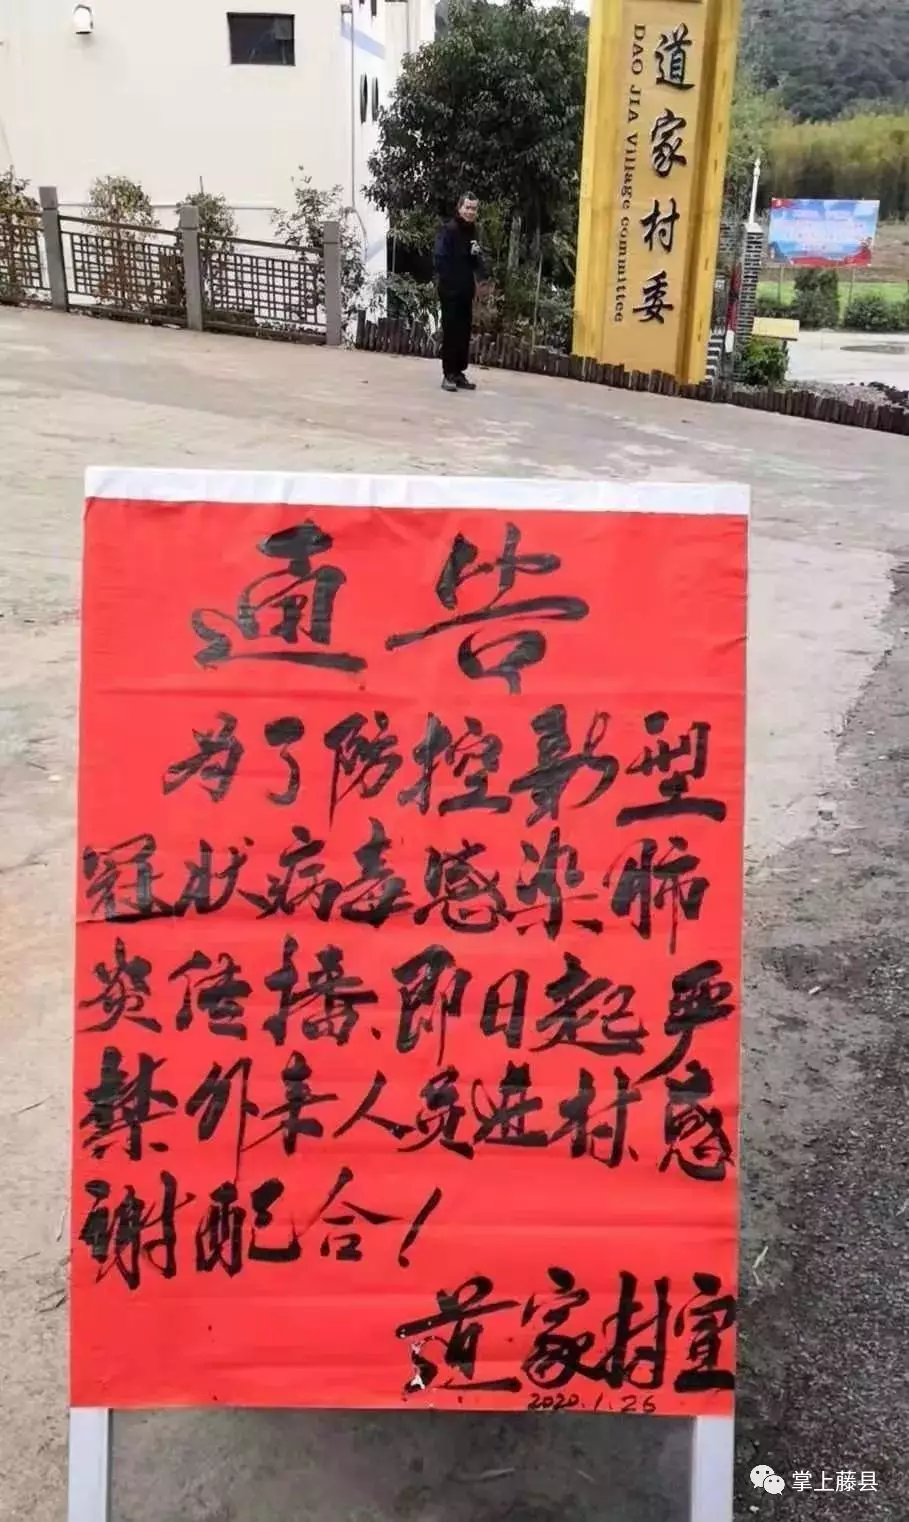 道家村委
DAO JIA Village committee
通告
为了防控新型
冠状病毒感染肺
炎传播、即日起严
禁外来人员进村、感
谢配合!
道家村宣
2020.1.26
掌上藤县